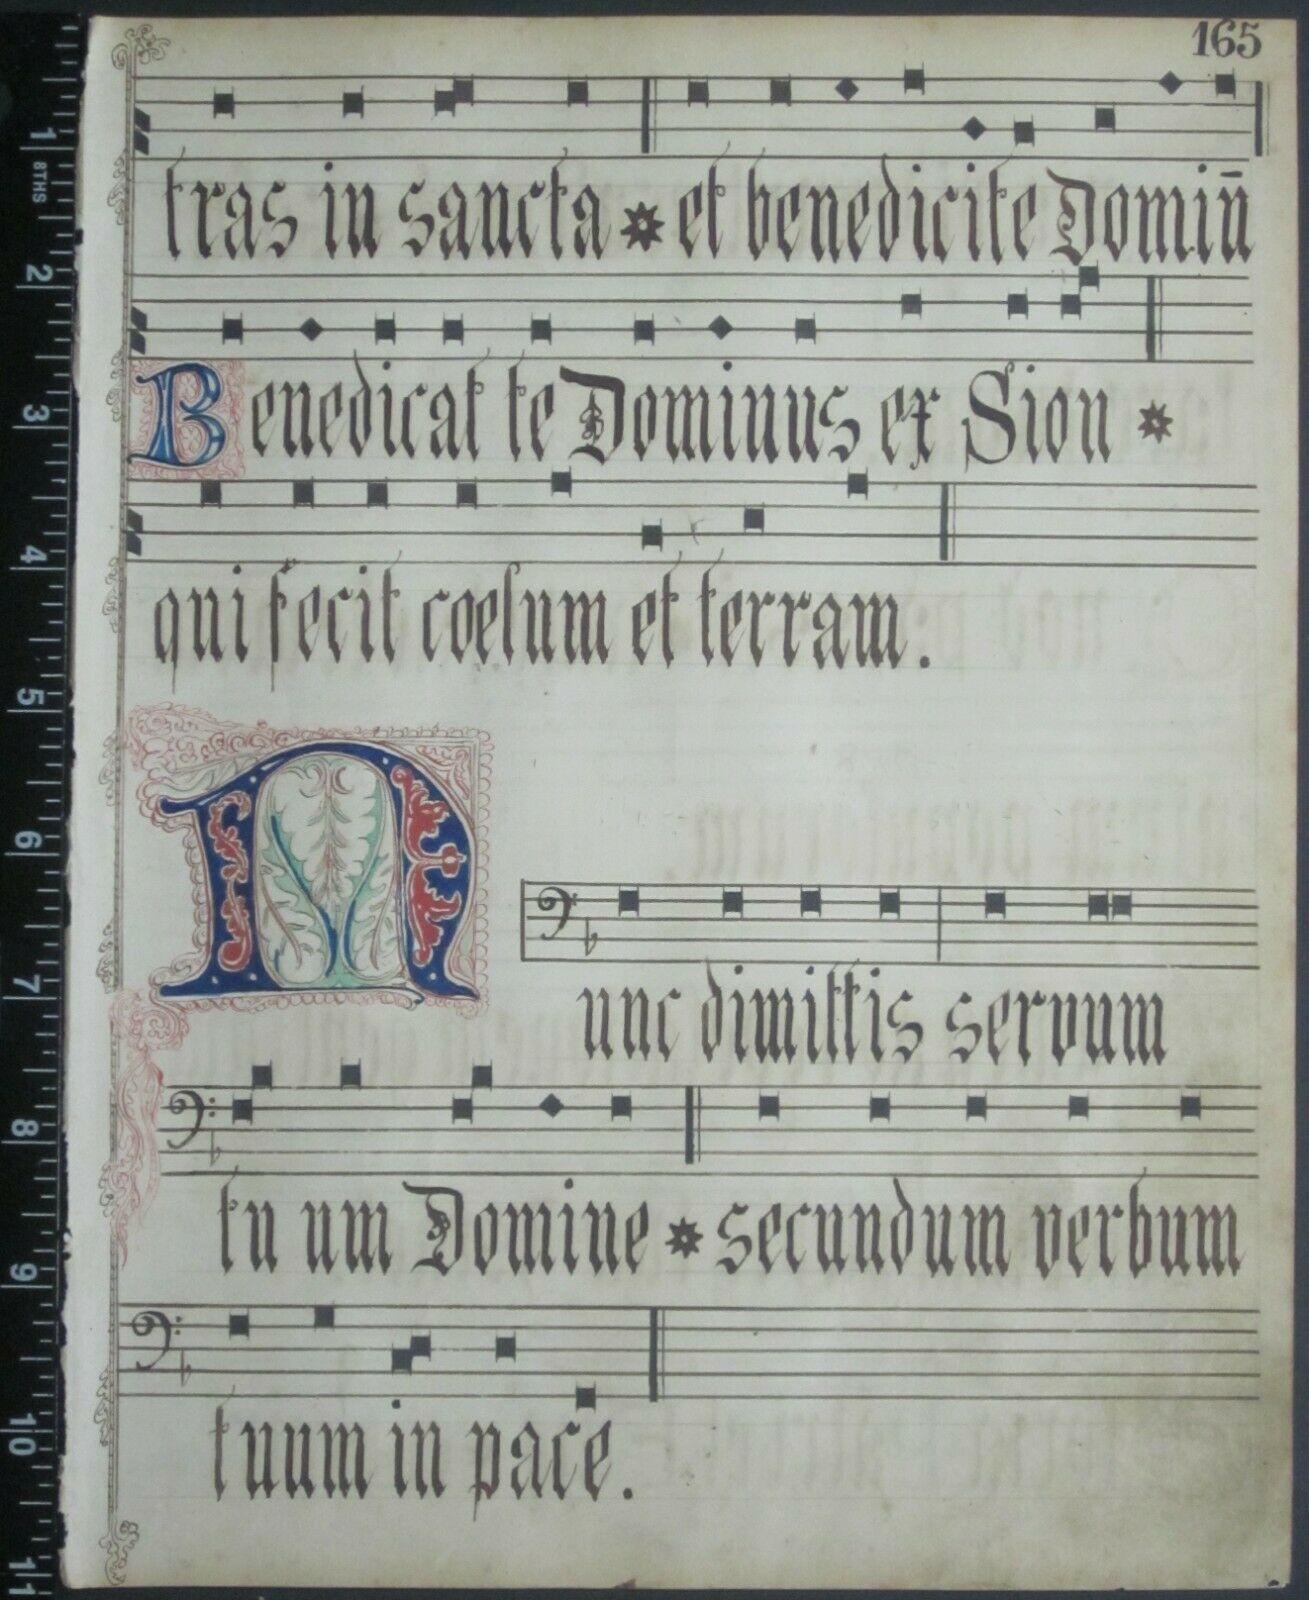 165
tras in sancta * et benedicite Domin̄
Benedicat te Dominus ex Sion *
qui fecit coelum et terram.
Nunc dimittis servum
tu um Domine * secundum verbum
tuum in pace.
1
8THS
2
3
4
5
6
7
8
9
10
11